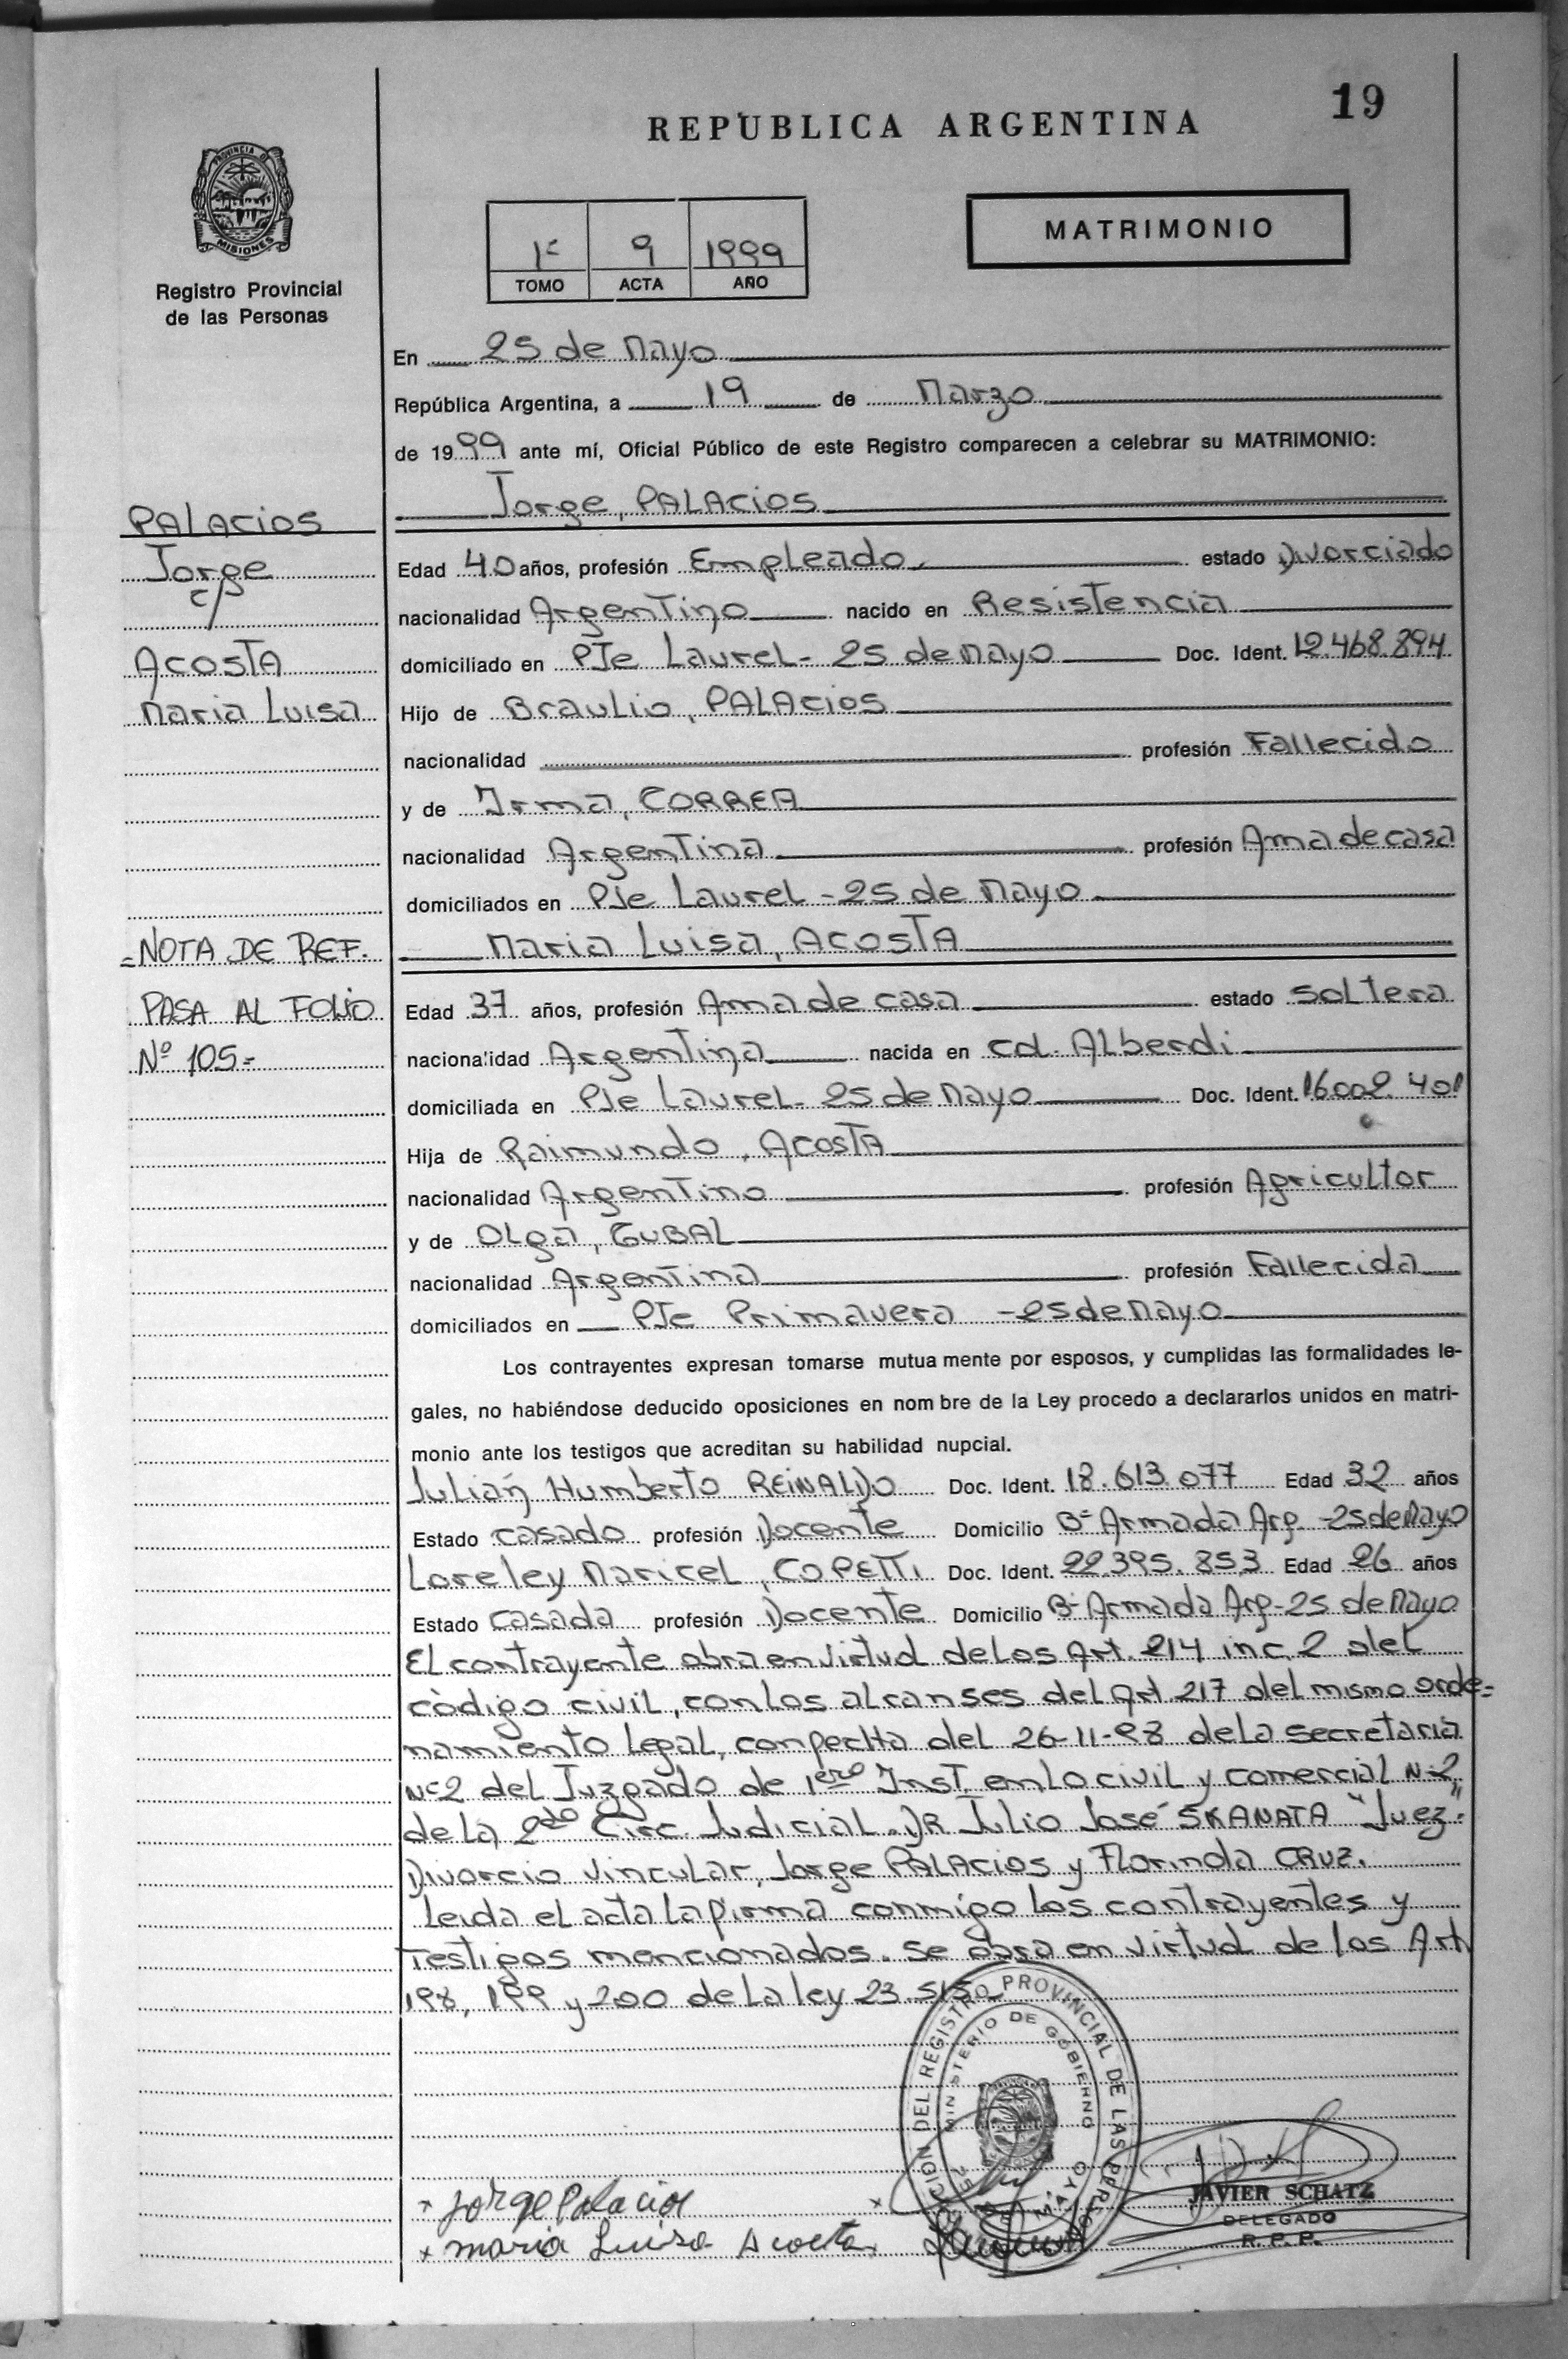 19
REPUBLICA ARGENTINA
PROVINCIA D
MISIONES
Registro Provincial
de las Personas
MATRIMONIO
1º 9 1999
TOMO ACTA AÑO
En 25 de Mayo
República Argentina, a 19 de Marzo
de 1999 ante mí, Oficial Público de este Registro comparecen a celebrar su MATRIMONIO:
Jorge, PALACIOS
PALACIOS
Jorge
c/
ACOSTA
Maria Luisa
Edad 40 años, profesión Empleado estado Divorciado
nacionalidad Argentino nacido en Resistencia
domiciliado en PJe Laurel - 25 de Mayo Doc. Ident. 12.468.894
Hijo de Braulio, PALACIOS
nacionalidad profesión Fallecido
y de Irma, CORREA
nacionalidad Argentina profesión Ama de casa
domiciliados en PJe Laurel - 25 de Mayo
Maria Luisa, ACOSTA
=NOTA DE REF.
PASA AL FOLIO
Nº 105=
Edad 37 años, profesión Ama de casa estado soltera
nacionalidad Argentina nacida en cd. Alberdi
domiciliada en PJe Laurel - 25 de Mayo Doc. Ident. 16.002.401
Hija de Raimundo, ACOSTA
nacionalidad Argentino profesión Agricultor
y de Olga, GUBAL
nacionalidad Argentina profesión Fallecida
domiciliados en PJe Primavera - 25 de Mayo
Los contrayentes expresan tomarse mutuamente por esposos, y cumplidas las formalidades le-
gales, no habiéndose deducido oposiciones en nombre de la Ley procedo a declararlos unidos en matri-
monio ante los testigos que acreditan su habilidad nupcial.
Julián Humberto REINALDO Doc. Ident. 18.613.077 Edad 32 años
Estado casado profesión Docente Domicilio Bº Armada Arg. - 25 de Mayo
Loreley Maricel, COPETTI Doc. Ident. 22.395.853 Edad 26 años
Estado casada profesión Docente Domicilio Bº Armada Arg - 25 de Mayo
El contrayente obra en virtud de los Art. 214 inc. 2 del
código civil, con los alcanses del Art. 217 del mismo orde=
namiento legal, con fecha del 26-11-98 de la secretaria
Nº2 del Juzgado de 1ero Inst. en lo civil y comercial Nº2
de la 2do Circ. Judicial. DR Julio José SKANATA "Juez"
Divorcio vincular, Jorge PALACIOS y Florinda CRUZ.
Leida el acta la firma conmigo los contrayentes y
Testigos mencionados. se obra en virtud de los Art.
198, 199 y 200 de la ley 23.515
DEL REGISTRO PROVINCIAL DE LAS PERSONAS
MINISTERIO DE GOBIERNO
25 DE MAYO
+ Jorge Palacios
+ maria Luisa Acosta
JAVIER SCHATZ
DELEGADO
R. P. P.